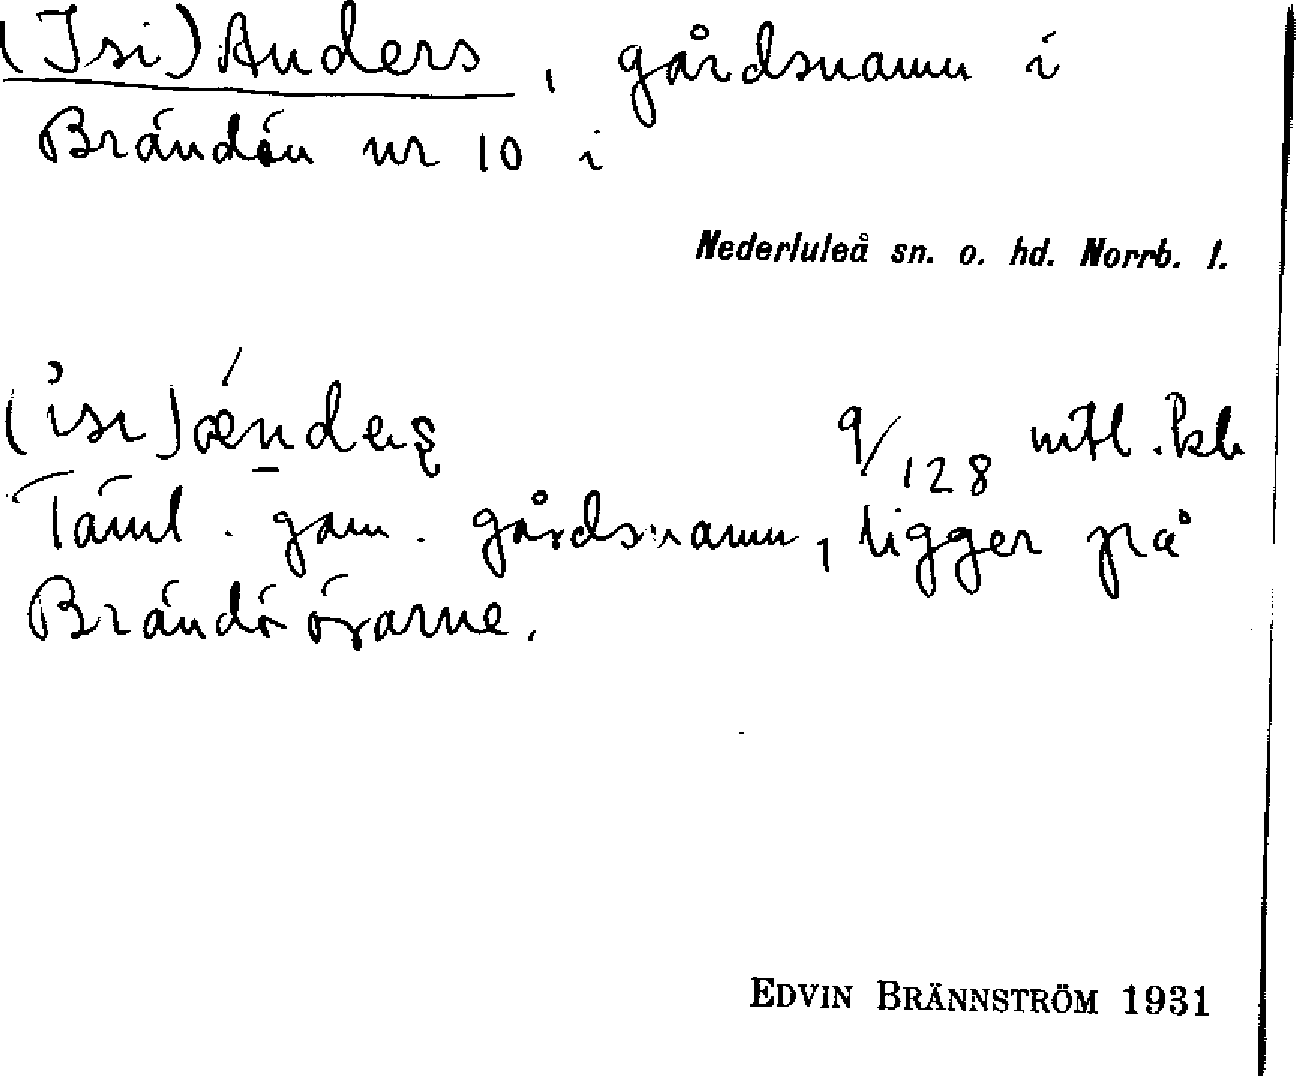 (Isi)Anders, gårdsnamn i
Brändön nr 10 i
Nederluleå sn. o. hd. Norrb. l.
9/128 mtl.
Täml. gam. gårdsnamn, ligger på
Brändöövarne.
EDVIN BRÄNNSTRÖM 1931